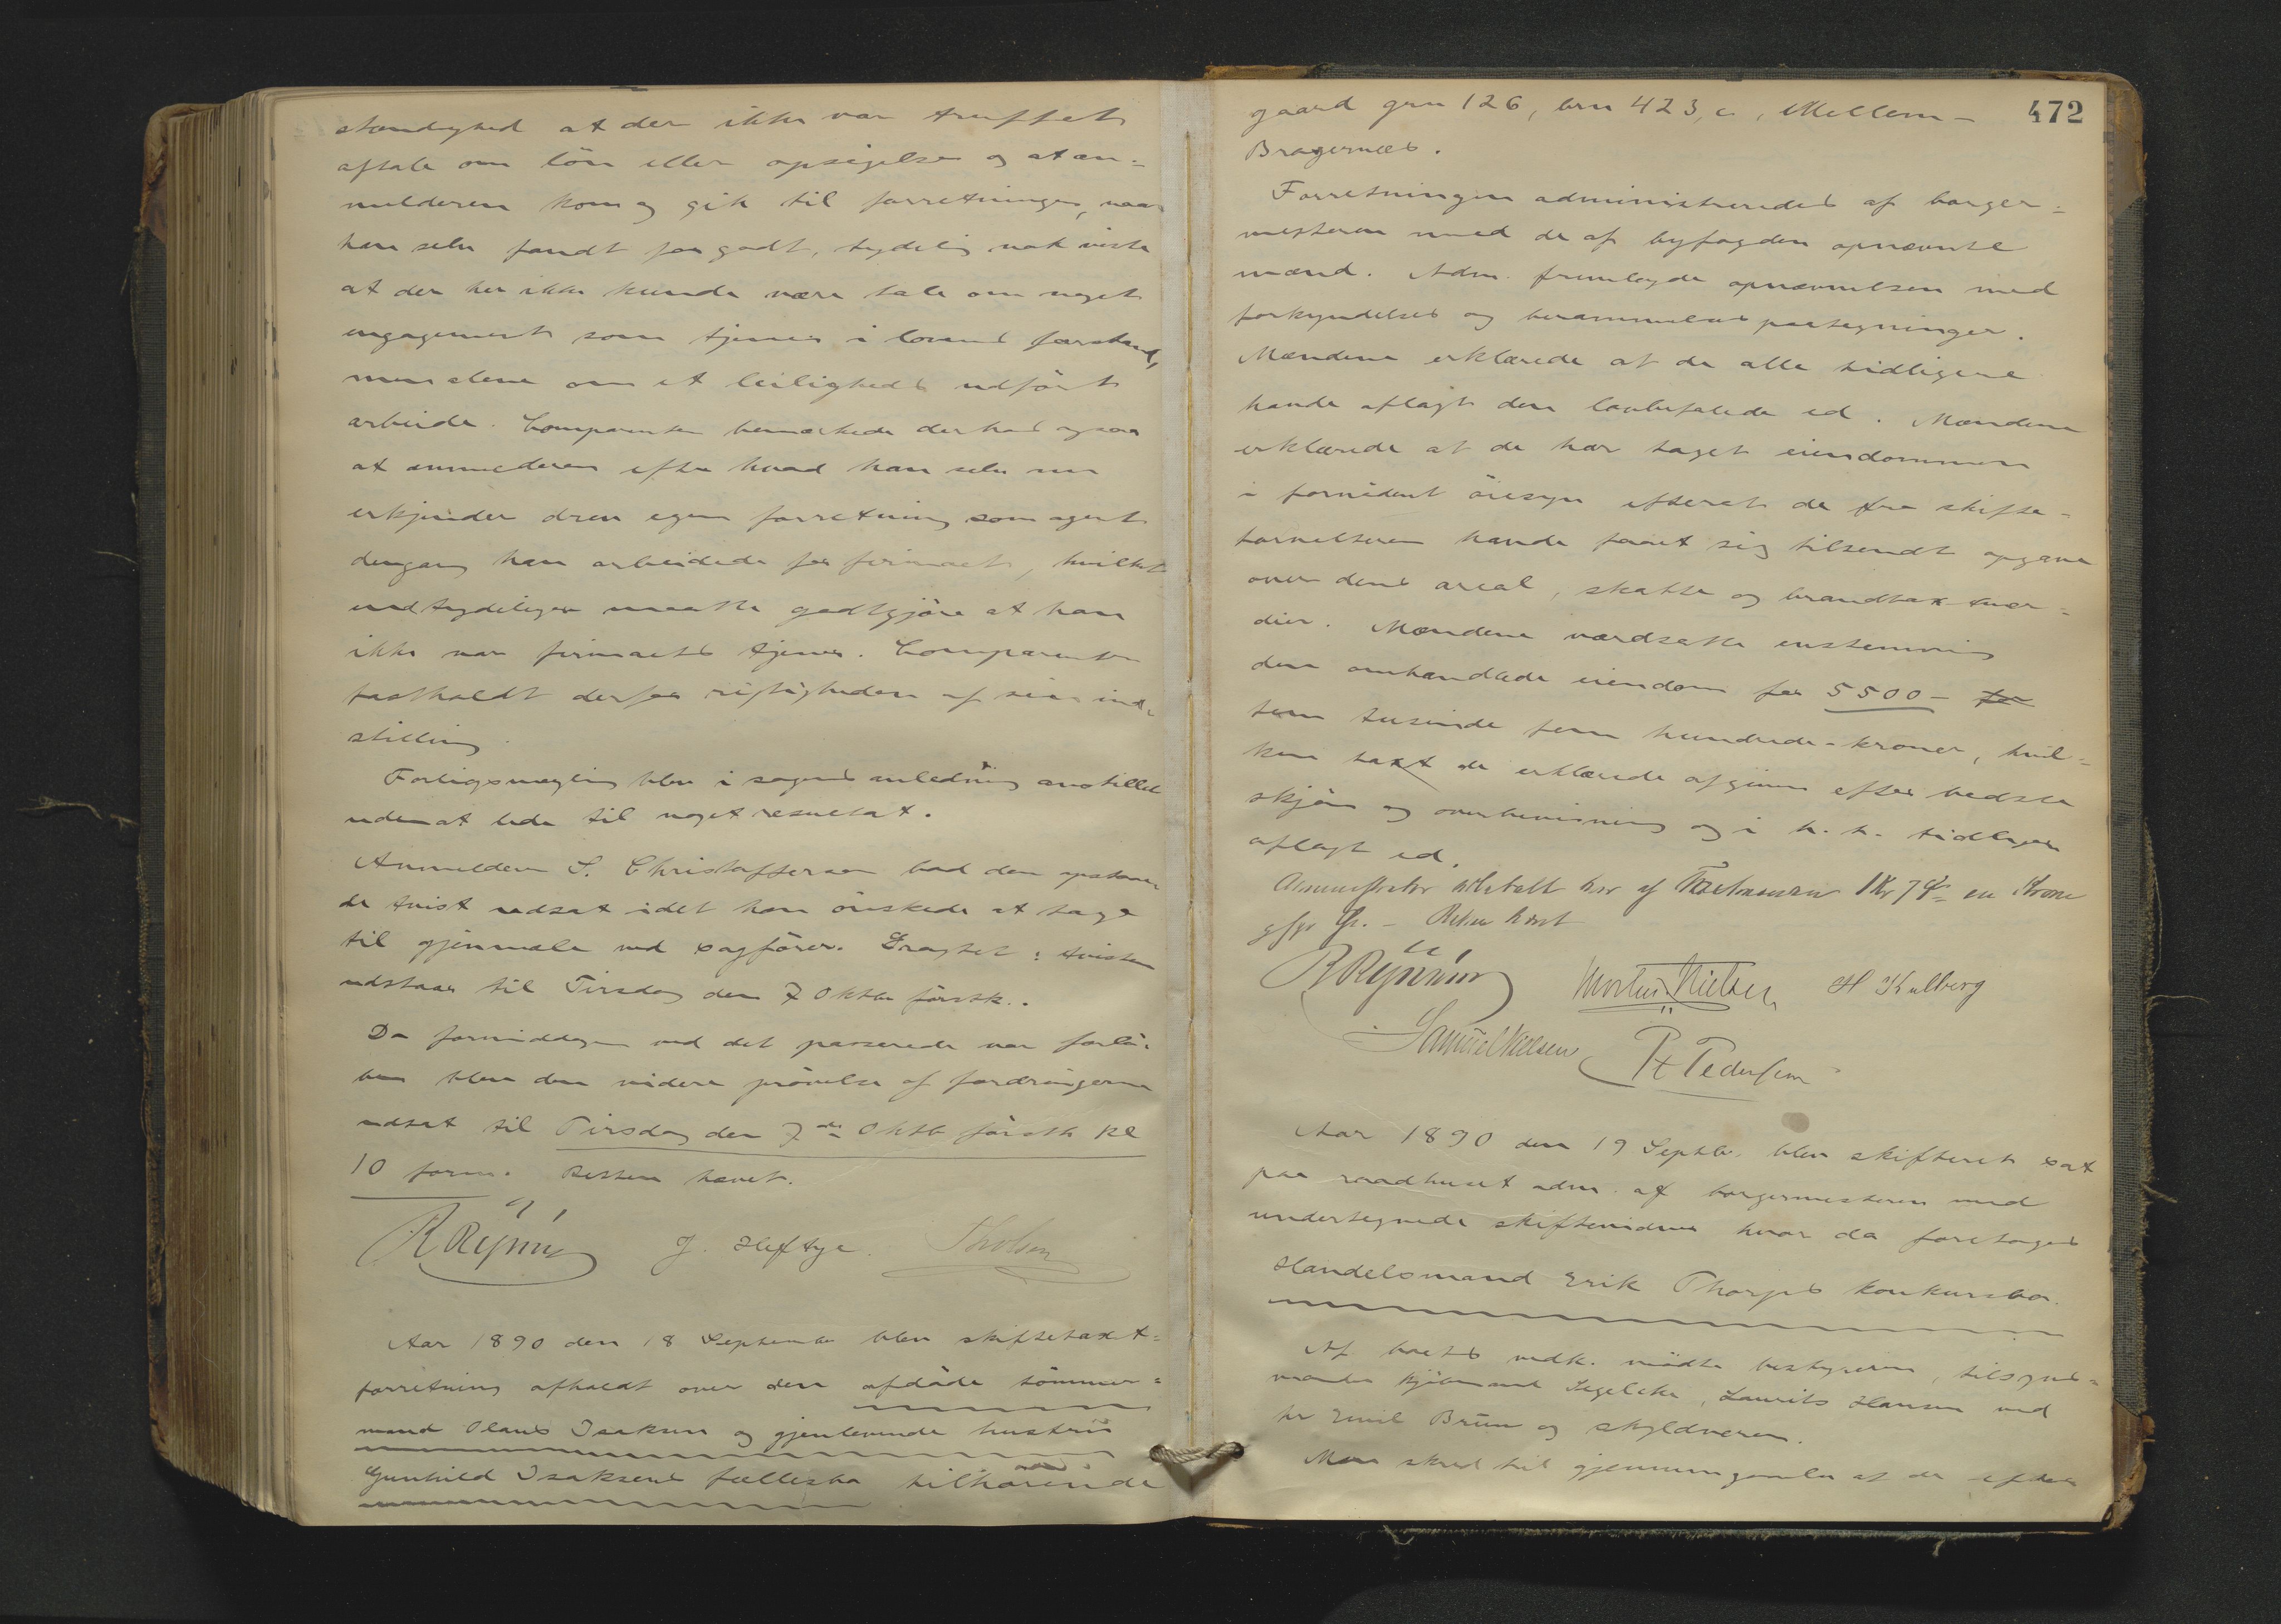 standighed at der ikke var truffet
aftale om lön eller opsigelse og at an=
melderen kom og gik til forretningen, naar
han selv fandt for godt, tydelig nok viste
at der her ikke kunde være tale om noget
engagement som tjener i lovens forstand,
men alene om et leilighedsvis udfört
arbeide. Comparenten bemærkede derhos ogsaa
at anmelderen efter hvad han selv nu
erkjender drev egen forretning som agent
dengang han arbeidede for firmaet, hvilket
end tydeligere maatte godtgjöre at han
ikke var firmaets tjener. Comparenten
fastholdt derfor rigtigheden af sin ind=
stilling.
Forligsmægling blev i sagens anledning anstillet
uden at lede til noget resultat.
Anmelderen S. Christoffersen bad den opstaae=
de tvist udsat idet han önskede at tage
til gjenmæle ved sagförer. Eragtet: tvisten
udstaar til Tirsdag den 7 Oktbr förstk..
Da formiddagen ved det passerede var forlö=
ben blev den videre prövelse af fordringerne
udsat til Tirsdag den 7de Oktb förstk Kl
10 form. Retten hævet.
J. Heftye.
Aar 1890 den 18 September blev skiftetaxt=
forretning afholdt over den afdöde tömmer=
mand Olaus Isaksen og gjenlevende hustru
Gunhild Isaksens fællesbo tilhörende
472
gaard grn 126, brn 423, c, Mellem-
Bragernæs.
Forretningen administreredes af borger=
mesteren med de af byfogden opnævnte
mænd. Adm. fremlagde opnævnelsen med
forkyndelses og berammelses paategninger.
Mændene erklærede at de alle tidligere
havde aflagt den lovbefalede ed. Mændene
erklærede at de har taget eiendommen
i fornödent öiesyn efterat de fra skifte=
forvalteren havde faaet sig tilsendt opgave
over dens areal, skatte og brandtaxtvær=
dier. Mændene værdsatte enstemmig
den omhandlede eiendom for 5500 - for
fem tusinde fem hundrede - kroner, hvil=
ken taxt de erklærede afgiven efter bedste
skjön og overbevisning og i h. t. tidligere
aflagt ed.
Administrator en Krone
Retten hævet
Morten Nielsen H Kulberg
Samuel Nielsen Pt Pedersen
Aar 1890 den 19 Septbr. blev skifteret sat
paa raadhuset adm. af borgermesteren med
undertegnede skiftevidner hvor da foretoges
Handelsmand Erik Thorps konkursbo.
Af boets vedk. mödte bestyreren, tilsyns=
mænd kjöbmand Segelcke, Laurits Hansen ved
hr Emil Bruun og skyldneren.
Man skred til gjennemgaaelse af de efter